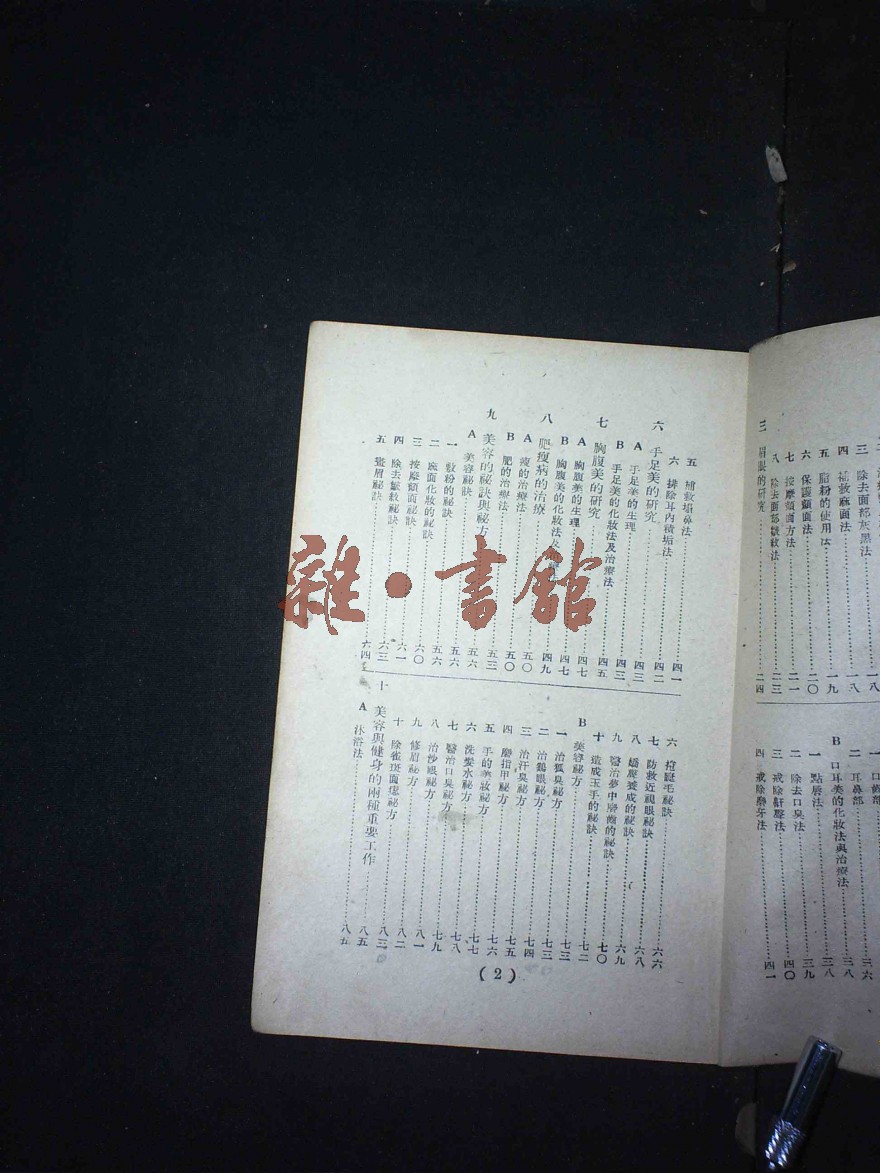 三 眉眼的研究……二四
八 除去面部皺紋法……二三
七 按摩顏面方法……二一
六 保護顏面法……二〇
五 脂粉的使用法……一九
四 補救麻面法……一九
三 除去面部灰黑法……一八
二 耳鼻部
B 口耳美的化妝法與治療法……三八
一 點唇法……三八
二 除去口臭法……三九
三 戒除鼾聲法……四〇
四 戒除磨牙法……四一
五 補救塌鼻法……四一
六 排除耳內積垢法……四二
六 手足美的研究……四三
A 手足美的生理……四三
B 手足美的化妝法及治療法……四五
七 胸腹美的研究……四七
A 胸腹美的生理……四七
B 胸腹美的化妝法及
八 肥瘦病的治療……五〇
A 瘦的治療法……五〇
B 肥的治療法……五三
九 美容的秘訣與秘方
A 美容秘訣……五六
一 敷粉的秘訣……五六
二 麻面化妝的秘訣……五六
三 按摩顏面秘訣……六〇
四 除去皺紋秘訣……六一
五 畫眉秘訣……六三
六 捲睫毛秘訣……六六
七 防救近視眼秘訣……六八
八 嬌靨養成的秘訣……六九
九 醫治夢中磨齒的秘訣……七〇
十 造成玉手的秘訣
B 美容秘方……七二
一 治狐臭秘方……七三
二 治鷄眼秘方……七三
三 治汗臭秘方……七四
四 磨指甲秘方……七五
五 手的美妝秘方……七六
六 洗髮水秘方……七七
七 醫治口臭秘方……七八
八 治沙眼秘方……七九
九 修眉秘方……八一
十 除雀斑面瘡秘方……八二
十 美容與健身的兩種重要工作
A 沐浴法……八五
(2)
雜·書館